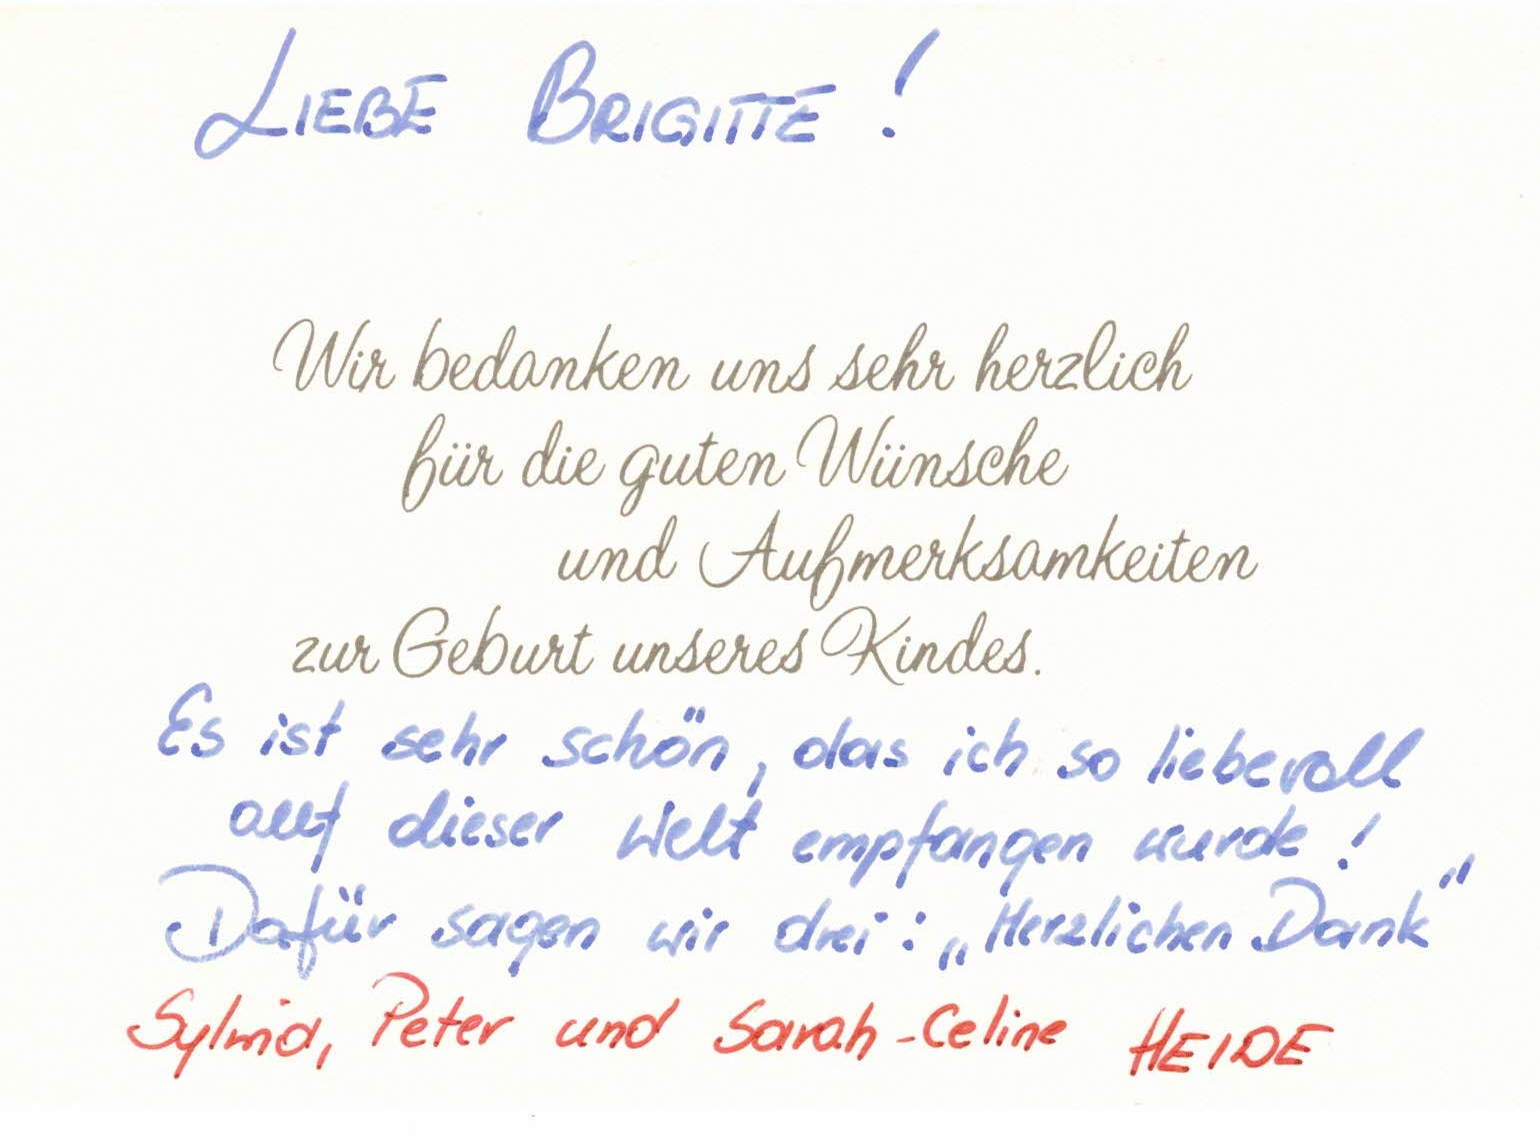 LIEBE BRIGITTE !
Wir bedanken uns sehr herzlich
für die guten Wünsche
und Aufmerksamkeiten
zur Geburt unseres Kindes.
Es ist sehr schön, das ich so liebevoll
auf dieser Welt empfangen wurde !
Dafür sagen wir drei : „Herzlichen Dank"
Sylvia, Peter und Sarah-Celine HEIDE